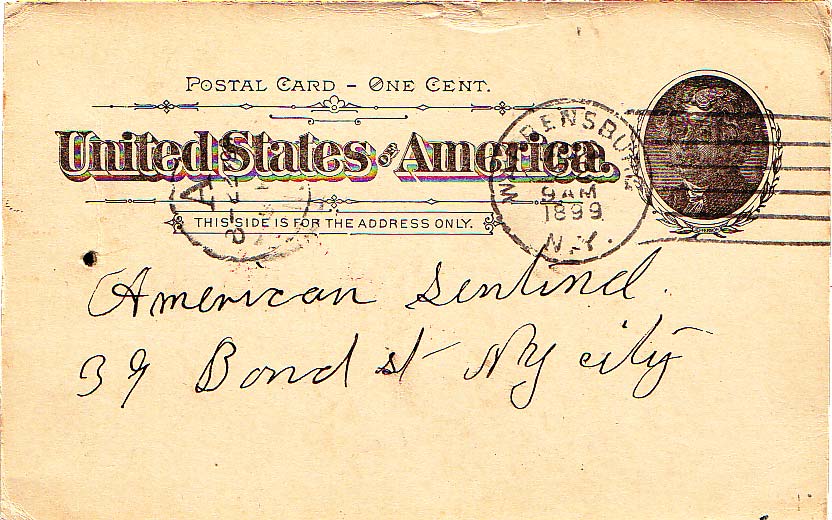 POSTAL CARD - ONE CENT.
United States of America.
THIS SIDE IS FOR THE ADDRESS ONLY.
WARRENSBURG
9 AM
1899
N.Y.
A
American Sentinel.
39 Bond st NY city